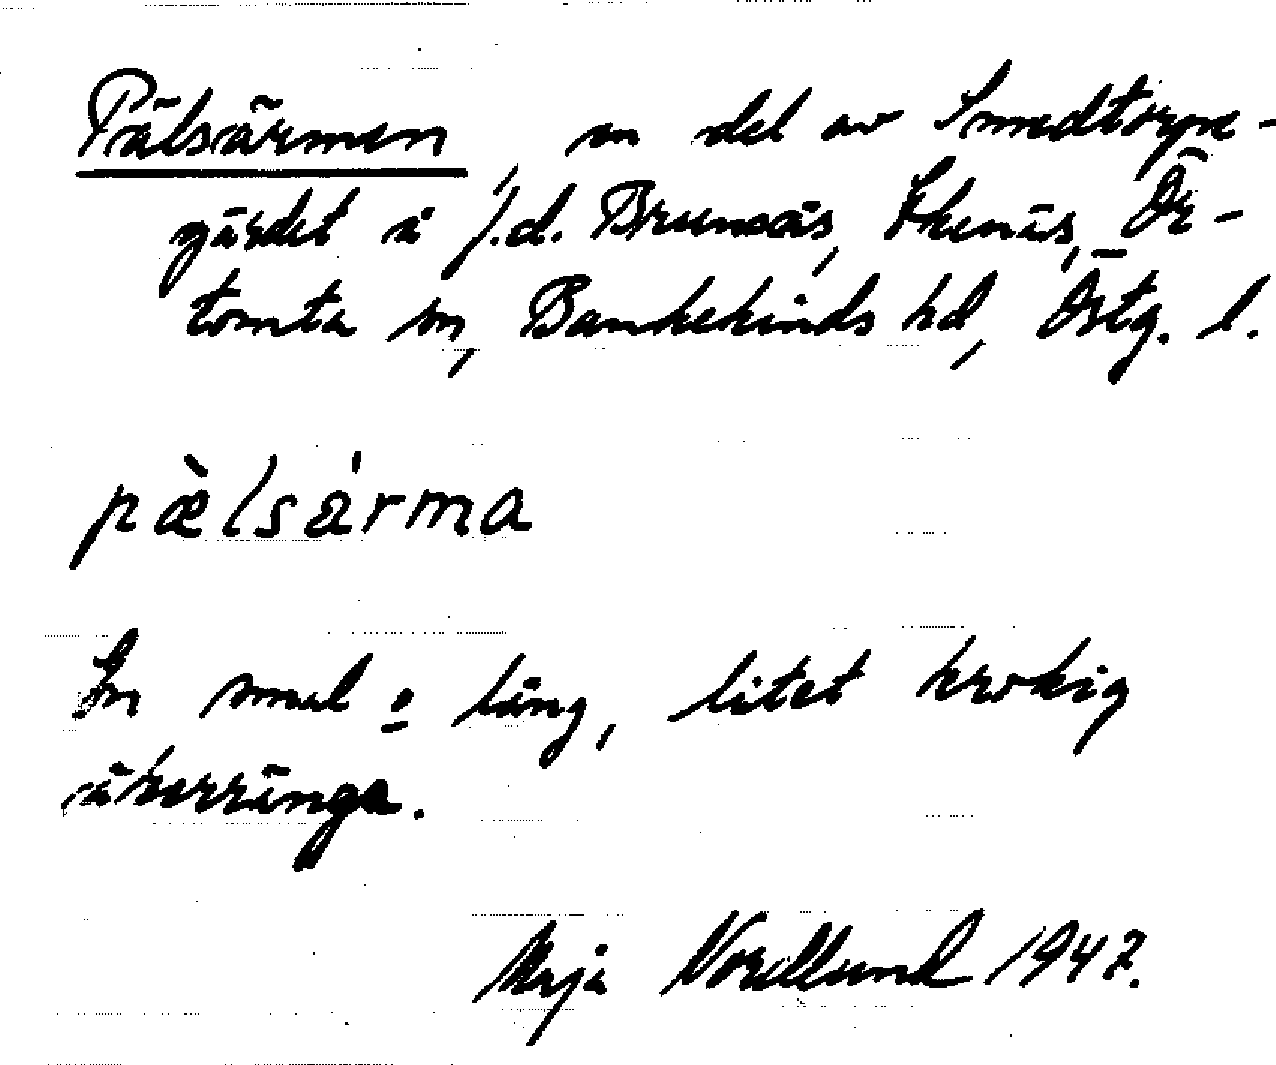 Pälsärmen, en del av Smedtorpe-
gärdet å f.d. Brunsäs, Skenäs, Ör-
tomta sn, Bankekinds hd, Östg. l.
pæ̀lsárma
En smal o lång, litet krokig
åkerränga.
Maja Nordlund 1947.